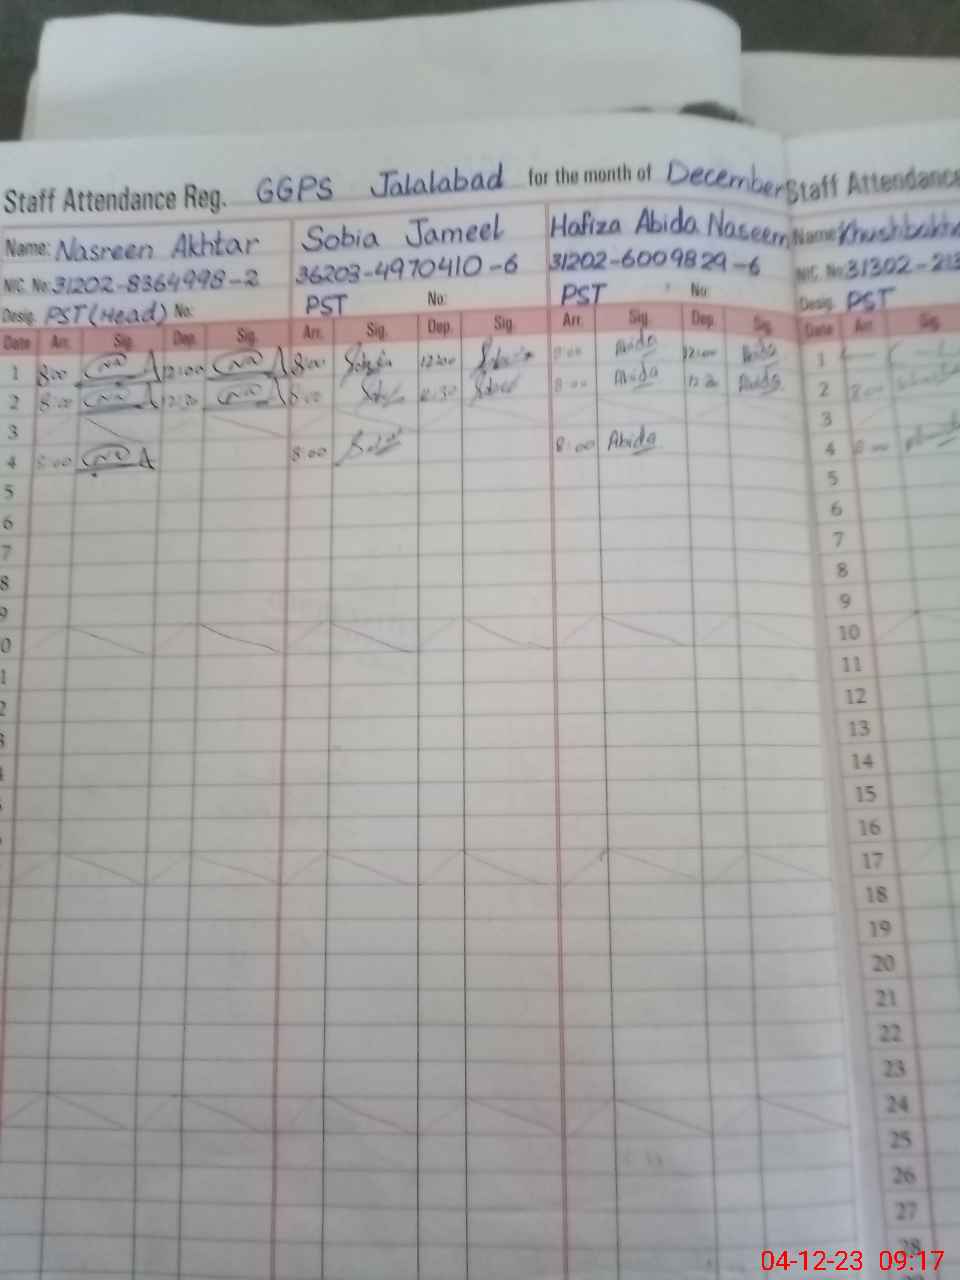 Staff Attendance Reg. GGPS Jalalabad for the month of December
Name: Nasreen Akhtar Sobia Jameel Hafiza Abida Naseem
NIC. No: 31202-8364998-2 36203-4970410-6 31202-6009829-6
Desig. PST (Head) No: PST No: PST No:
Date Arr. Sig. Dep. Sig. Arr. Sig. Dep. Sig. Arr. Sig. Dep. Sig.
1 8:00 12:00 8:00 Sobia 12:00 Sobia 8:00 Abida 12:00 Abida
2 8:00 12:30 8:00 12:30 8:00 Abida 12:30 Abida
3
4 8:00 8:00 8:00 Abida
5
6
7
8
9
0
1
2
3
Staff Attendance
Name:
NIC. No: 31302-213
Desig. PST
Date Arr. Sig.
1
2 8:00
3
4 8:00
5
6
7
8
9
10
11
12
13
14
15
16
17
18
19
20
21
22
23
24
25
26
27
28
04-12-23 09:17